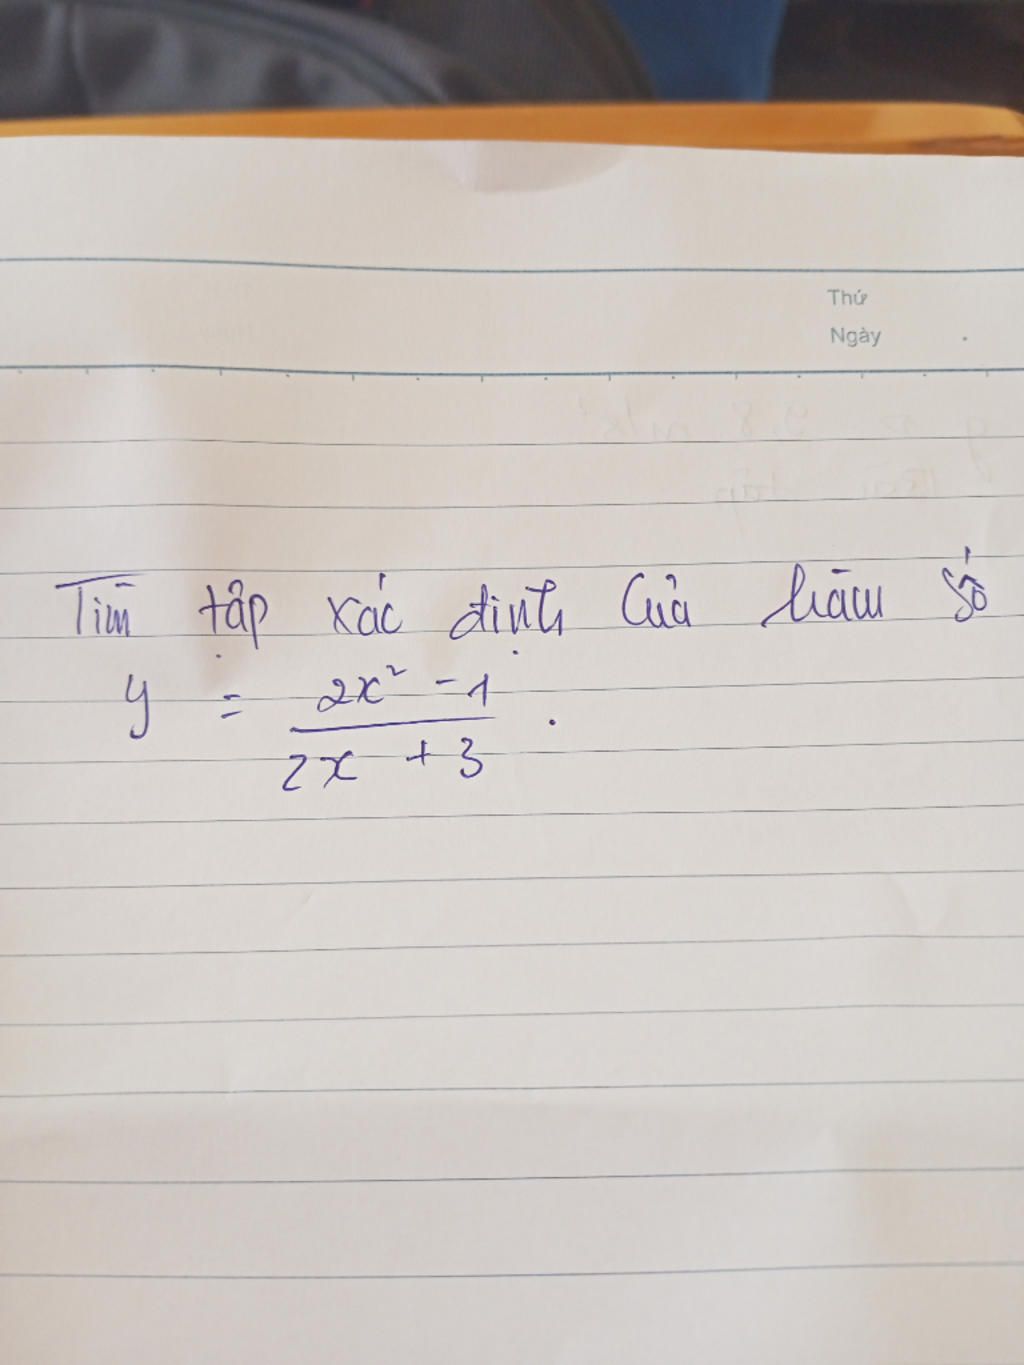 Thứ
Ngày
Tìm tập xác định của hàm số
y = \frac{2x² - 1}{2x + 3} .